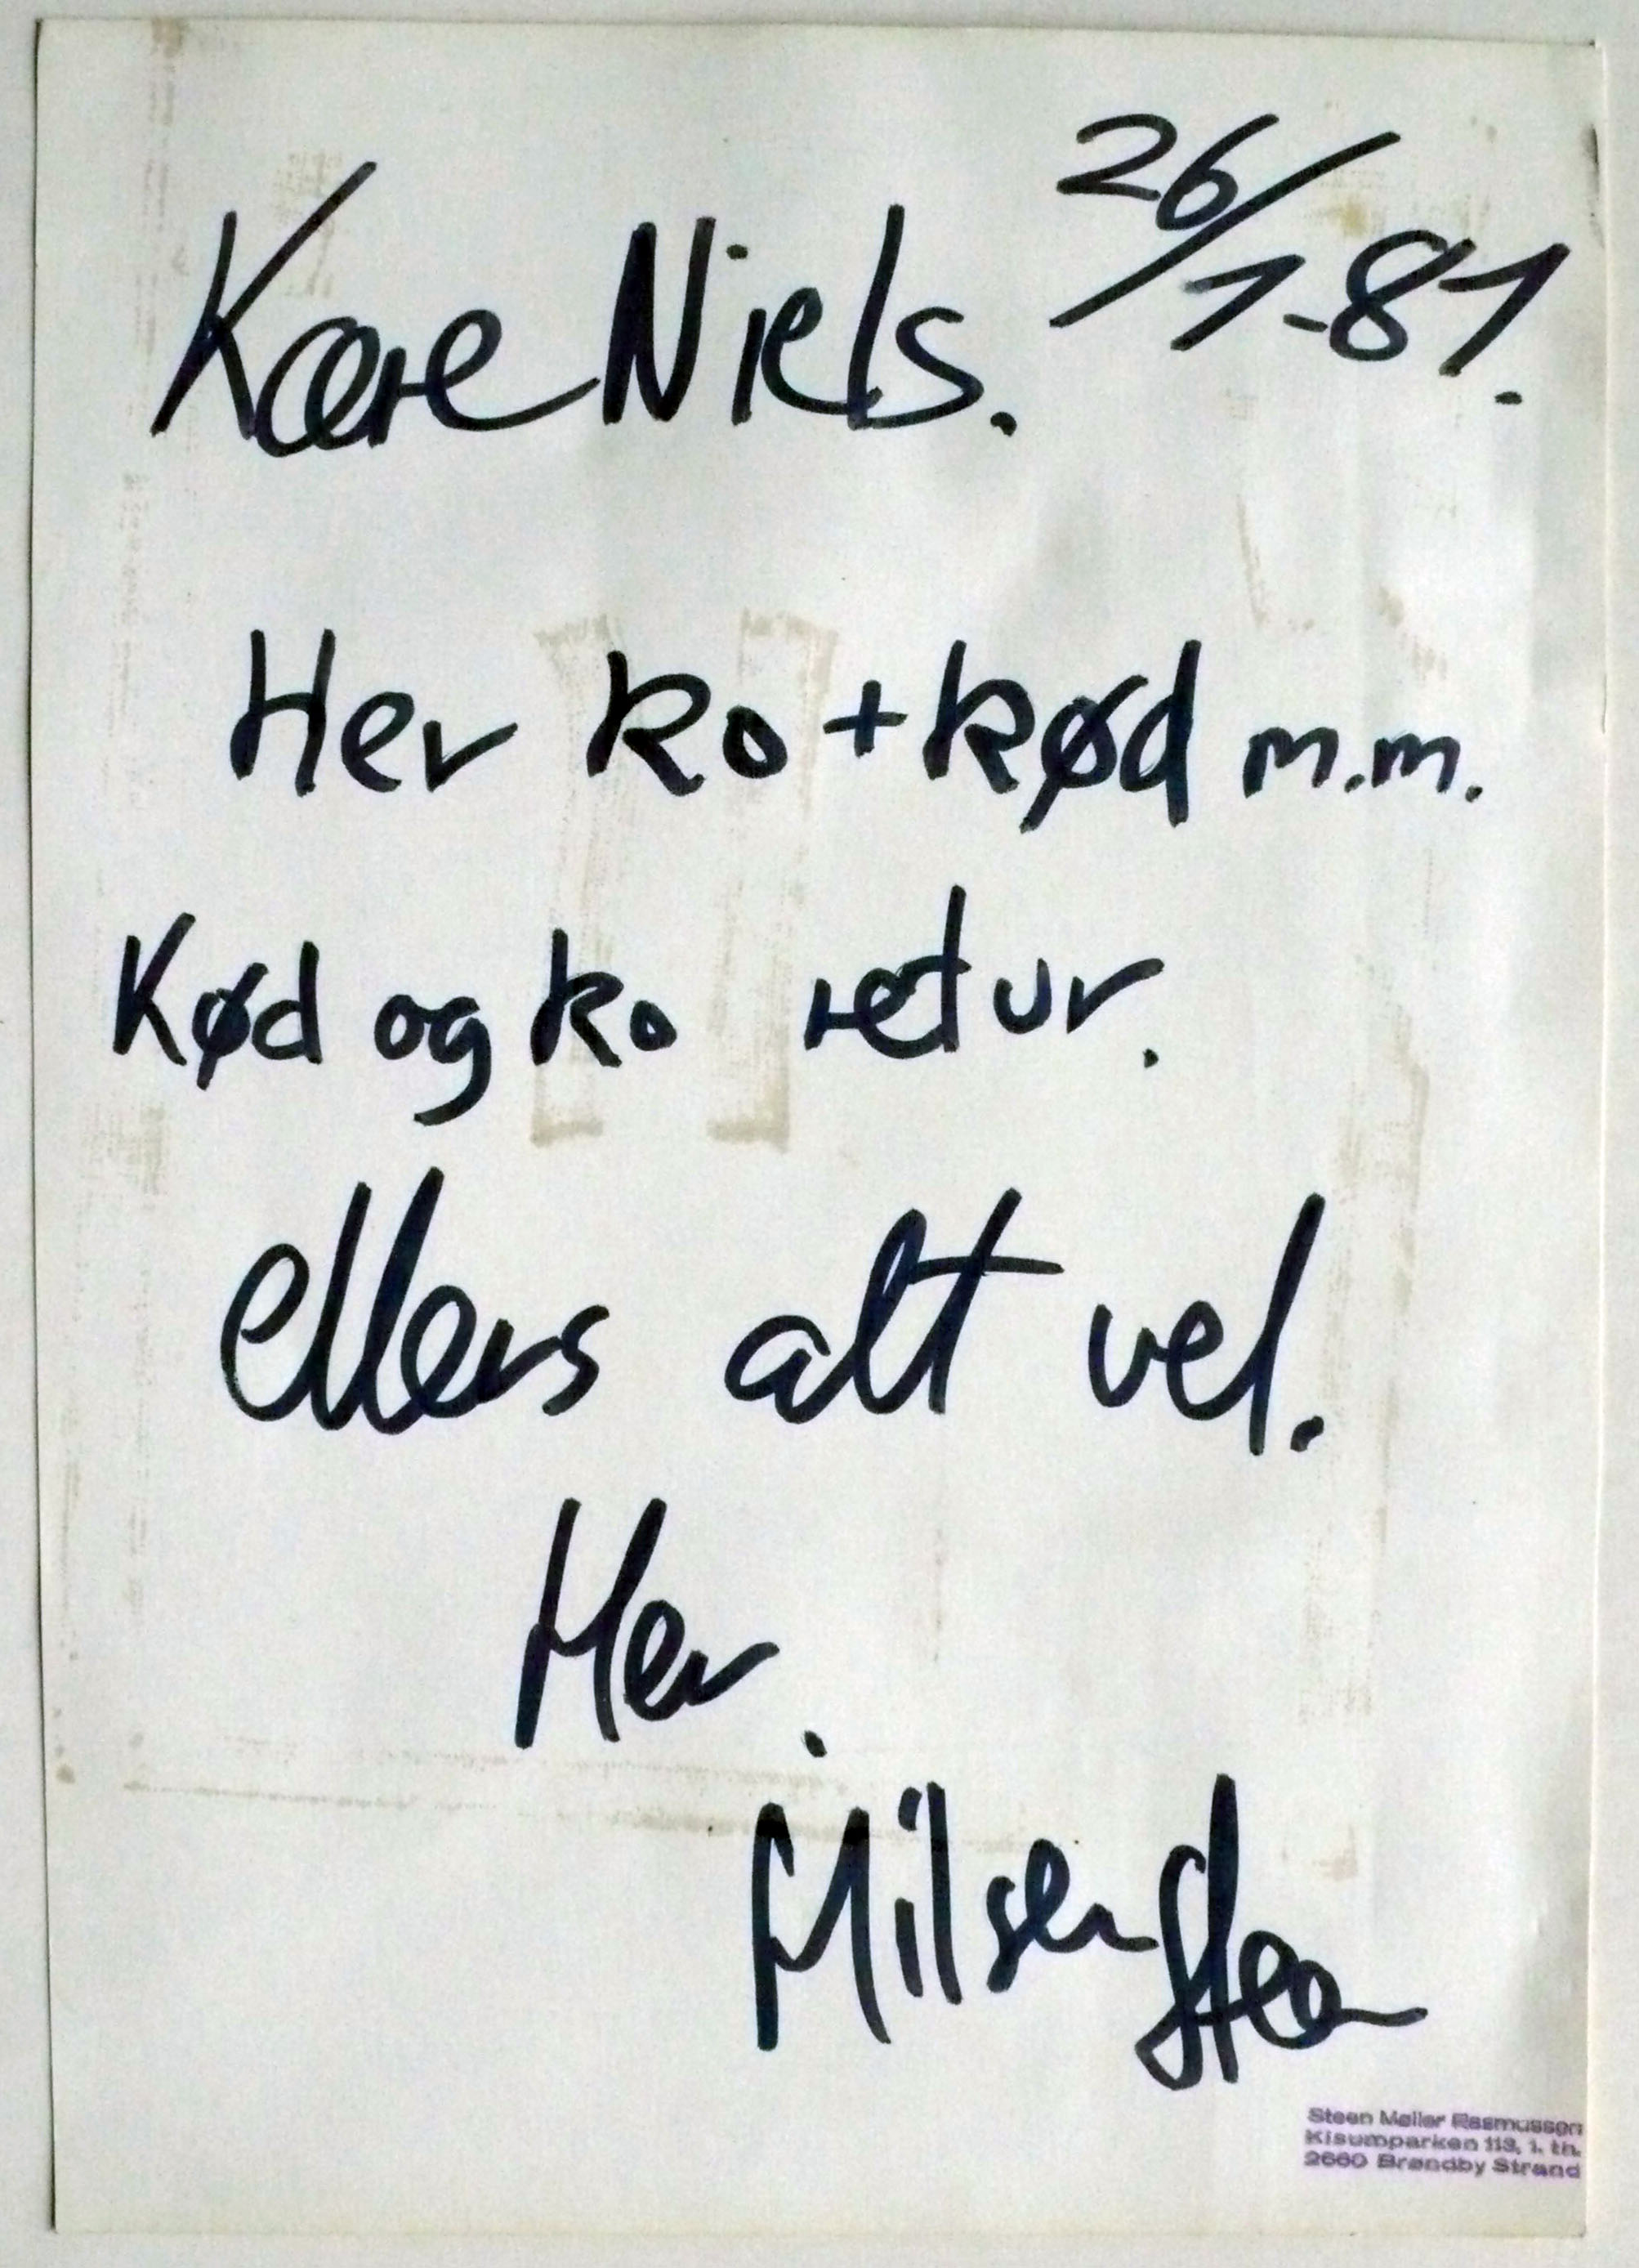 26/1-81.
Kære Niels.
Her ko + kød m.m.
Kød og ko retur.
ellers alt vel.
Her
Hilsen Steen
Steen Møller Rasmussen
Kisumparken 113, 1. th.
2660 Brøndby Strand